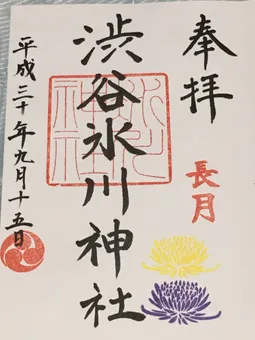 奉拝
長月
渋谷氷川神社
平成三十年九月十五日